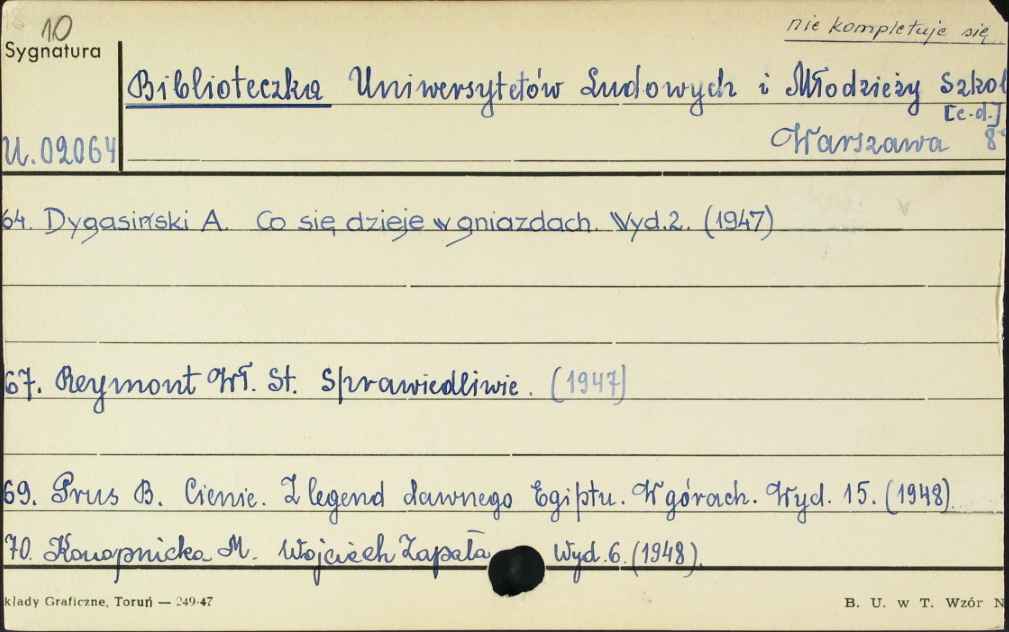 10
nie kompletuje się
Sygnatura
Biblioteczka Uniwersytetów Ludowych i Młodzieży Szkol
[c.d.]
U.02064 Warszawa 8°
64. Dygasiński A. Co się dzieje w gniazdach. Wyd.2. (1947)
67. Reymont Wł. St. Sprawiedliwie. (1947)
69. Prus B. Cienie. Z legend dawnego Egiptu. W górach. Wyd. 15. (1948)
70. Konopnicka M. Wojciech Zapała Wyd.6. (1948).
kłady Graficzne, Toruń — 249-47 B. U. w T. Wzór N